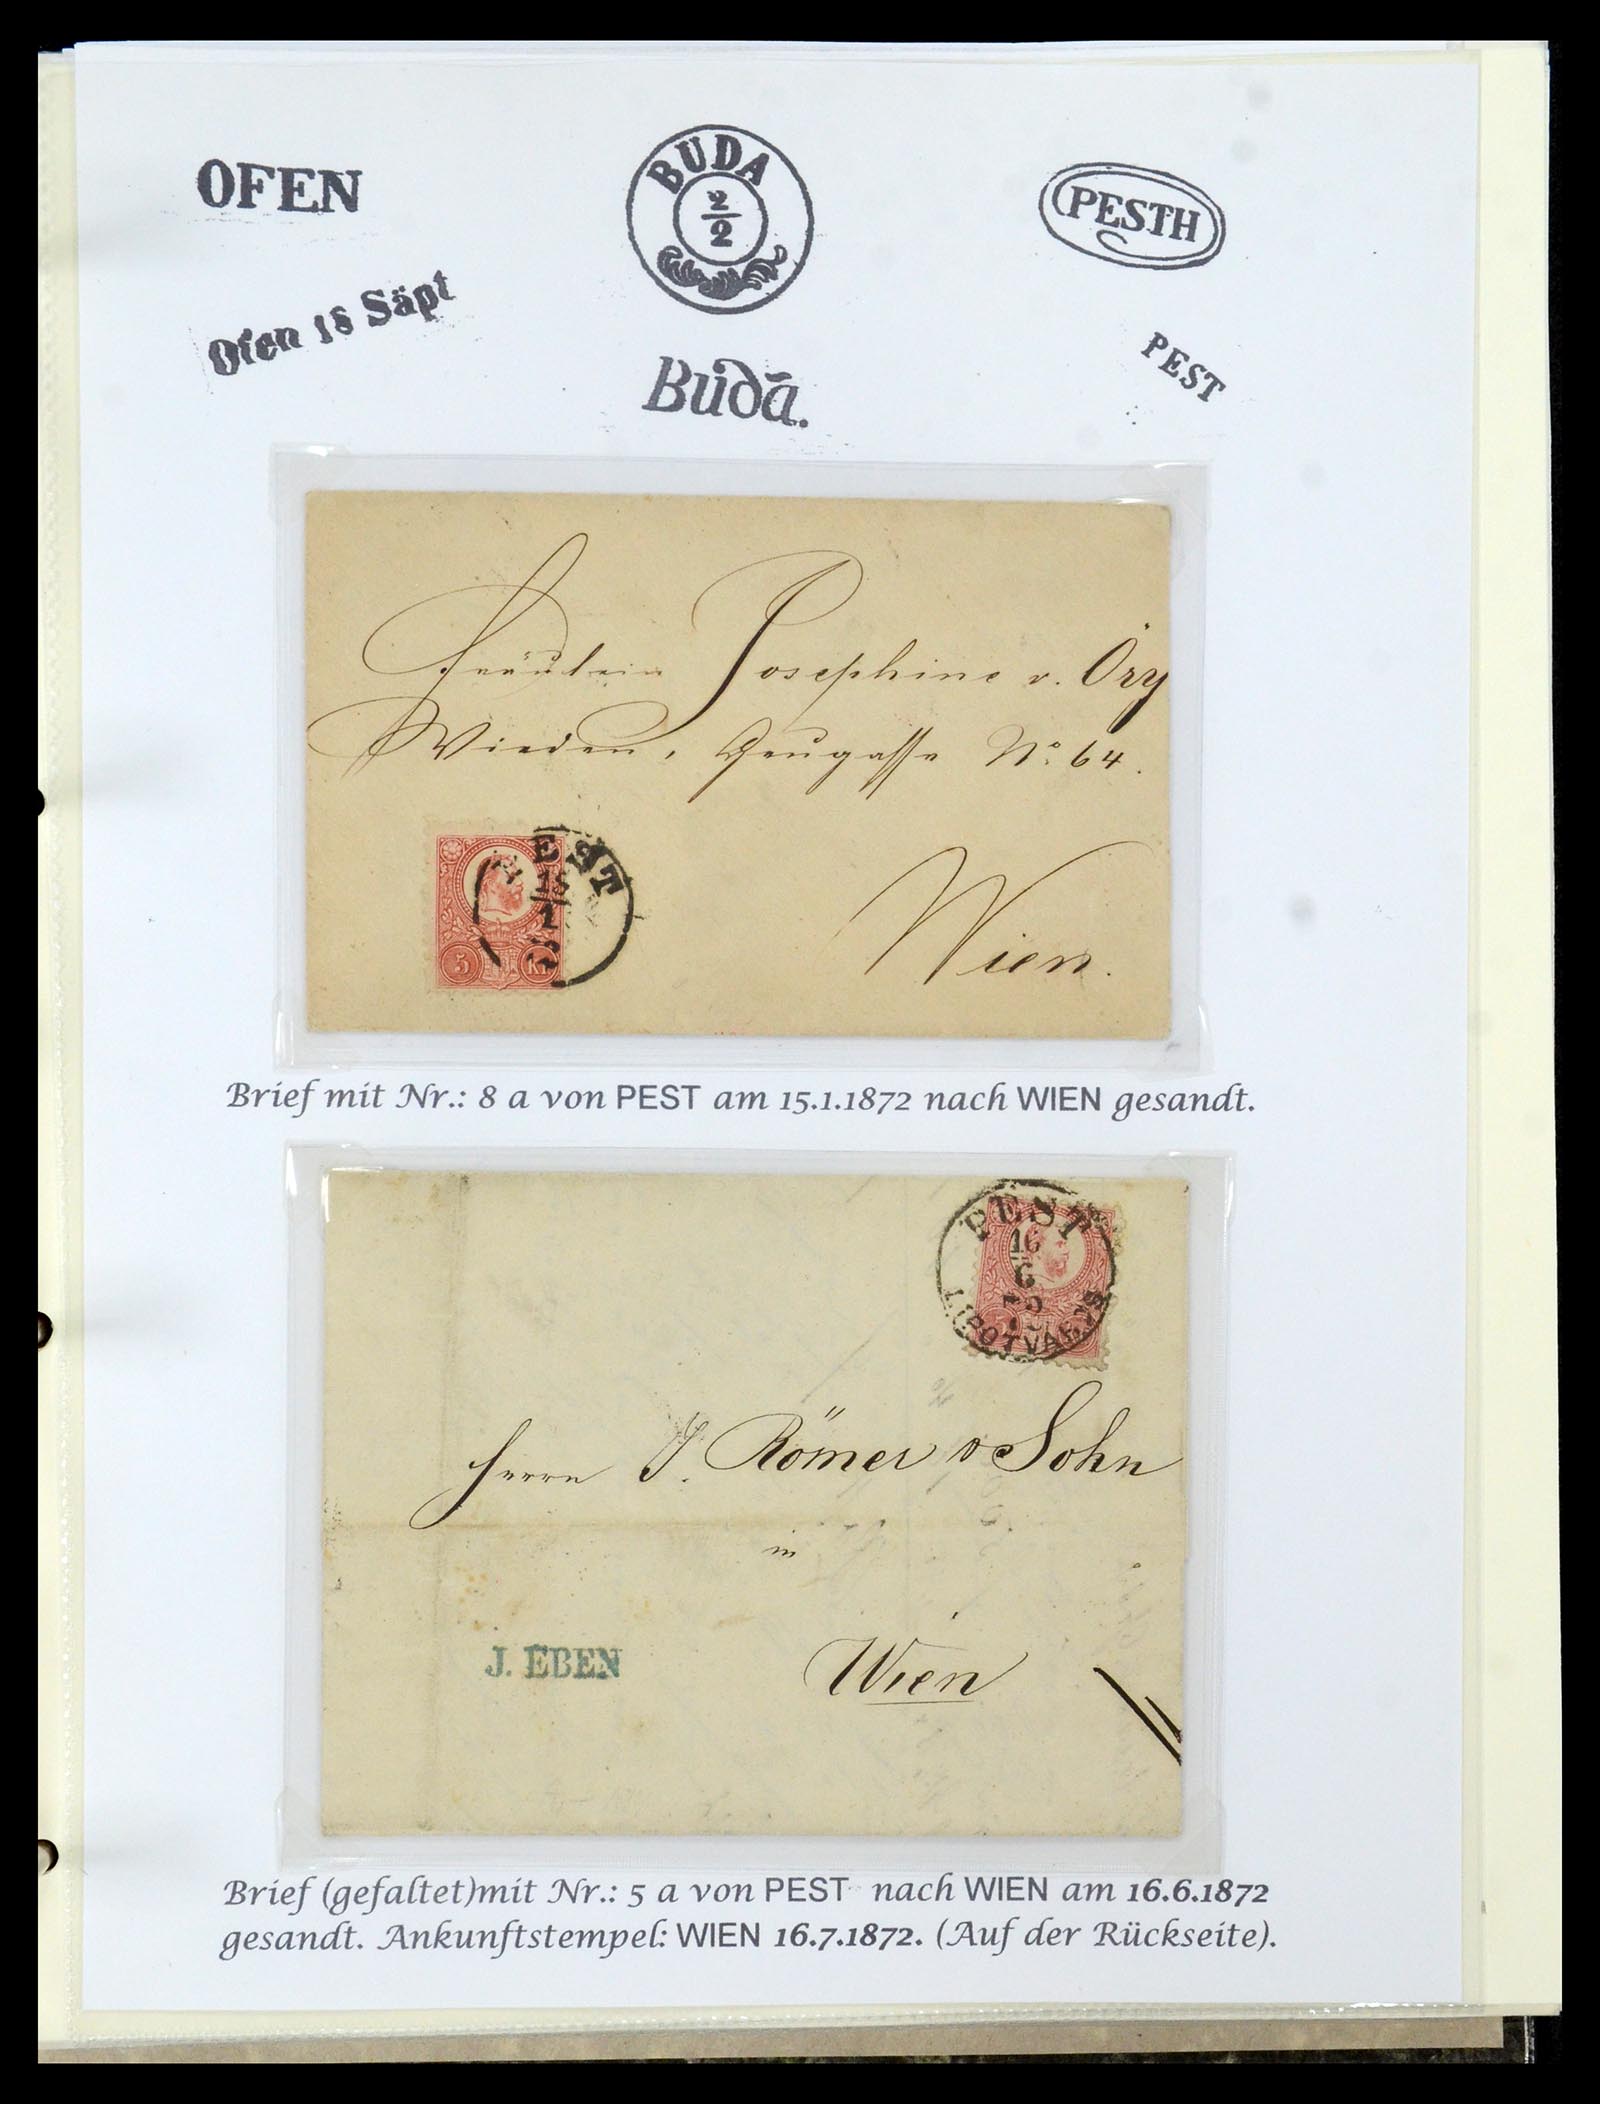 OFEN
BUDA
2
2
PESTH
Ofen 18 Säpt
Buda.
PEST
Fräulein Josephine v. Öry
Wieden, Heugasse No. 64.
PEST
15
1
72
5 Kr
Wien.
Brief mit Nr.: 8 a von PEST am 15.1.1872 nach WIEN gesandt.
PEST
16
6
LIPOTVAROS
Herrn J. Römer & Sohn
in
J. EBEN
Wien
Brief (gefaltet)mit Nr.: 5 a von PEST nach WIEN am 16.6.1872
gesandt. Ankunftstempel: WIEN 16.7.1872. (Auf der Rückseite).